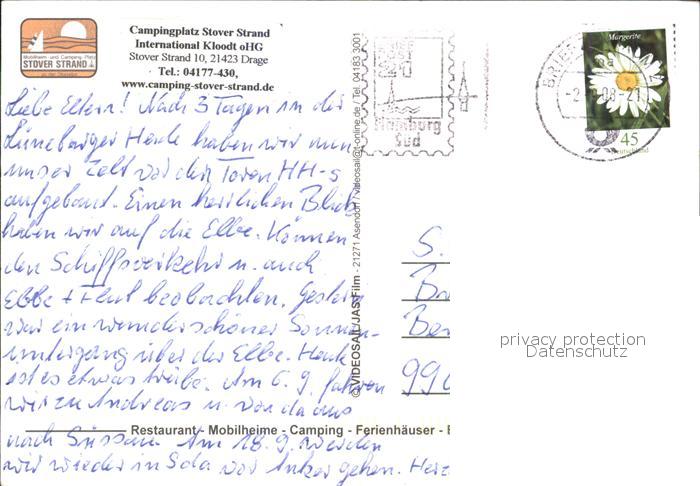 Mobilheim- und Camping- Platz
STOVER STRAND
Campingplatz Stover Strand
International Kloodt oHG
Stover Strand 10, 21423 Drage
Tel.: 04177-430,
www.camping-stover-strand.de
Liebe Eltern! Nach 3 Tagen in der
Lüneburger Heide haben wir nun
unser Zelt vor den Toren HH-s
aufgebaut. Einen herrlichen Blick
haben wir auf die Elbe. Können
den Schiffsverkehr u. auch
Ebbe + Flut beobachten. Gestern
war ein wunderschöner Sonnen-
untergang über der Elbe. Heute
ist es etwas trübe. Am 6. 9. fahren
wir zu Andreas u. von da aus
nach Am 18. 9. werden
wir wieder in Sda vor Anker gehen. Herz
Restaurant - Mobilheime - Camping - Ferienhäuser -
©VIDEOSAIL/JAS Film - 21271 Asendorf / videosail@t-online.de / Tel. 04183 3001
BRIEF
POST
Hamburg
Süd
BRIEF
Margerite
45
Deutschland
S.
Br
Be
990
privacy protection
Datenschutz